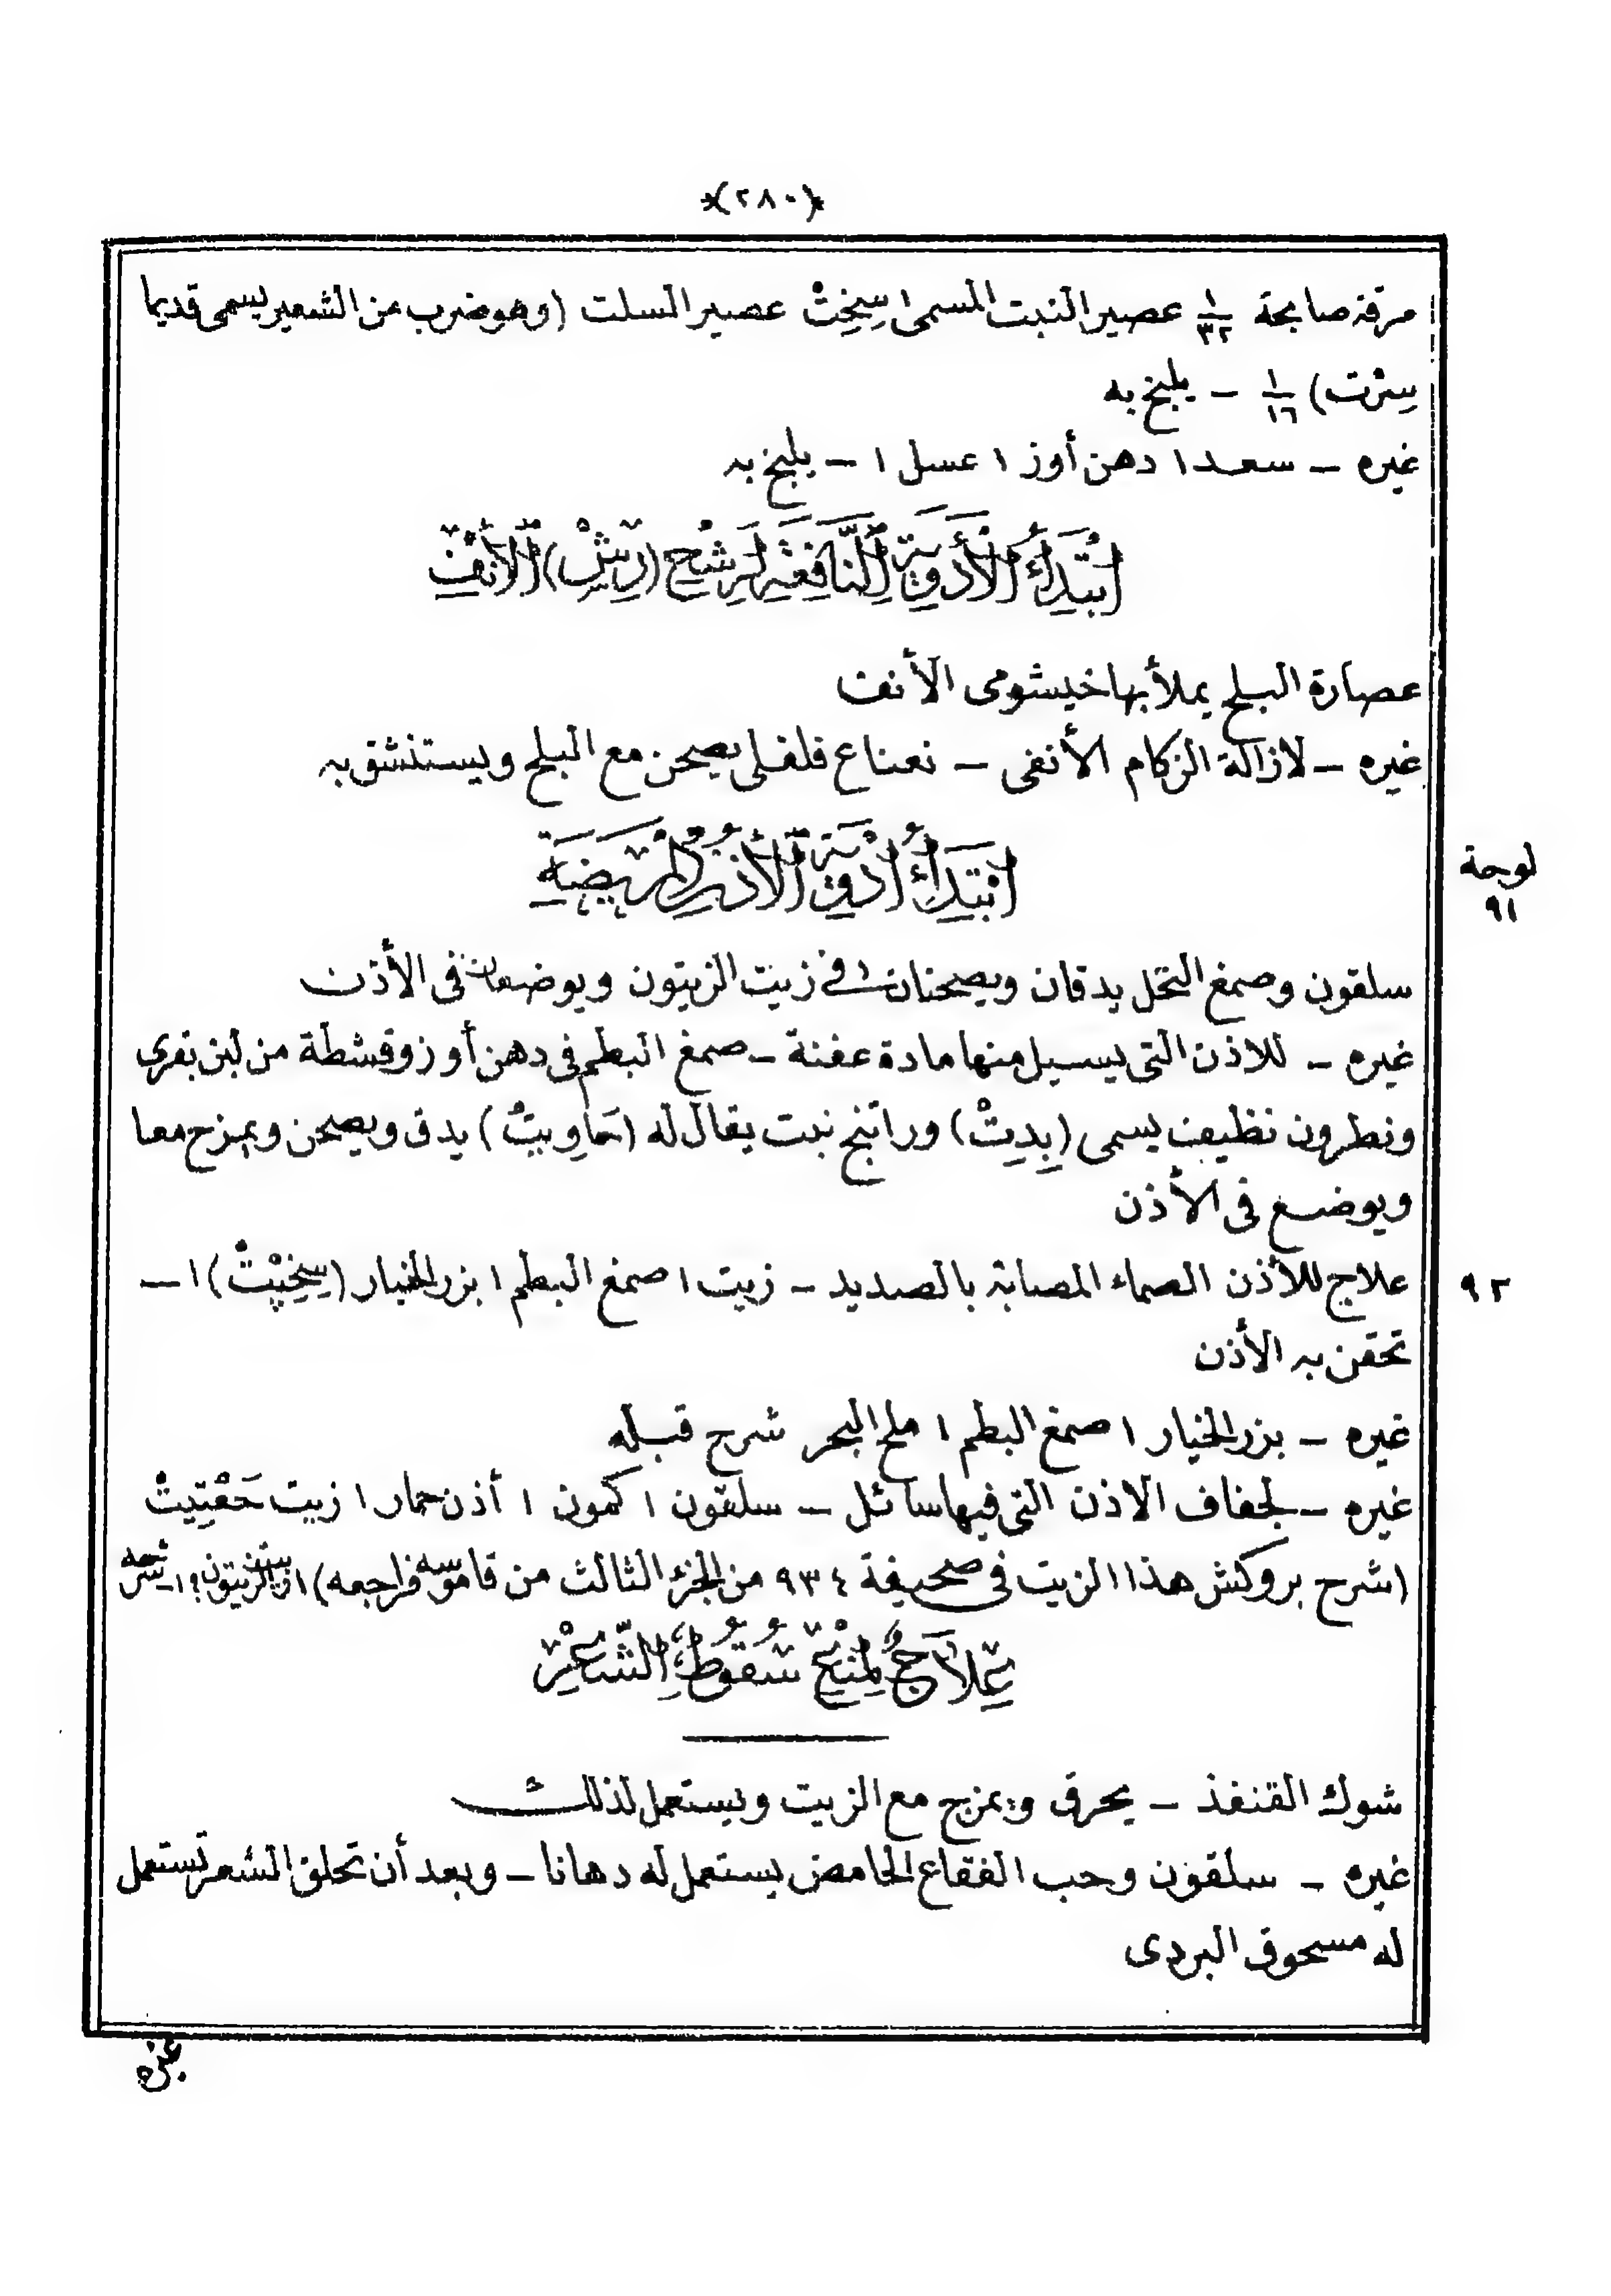 *(٢٨٠)*
مرقة صابحة ١/٣٢ عصير النبت المسمى اسِخِتْ عصير السلت (وهو ضرب من الشعير يسمى قديما
سِرْت) ١/١٦ – يلبخ به
غيره – سعد ١ دهن أوز ١ عسل ١ – يلبخ به
ابتداء الأدوية النافعة لرشح (رِشْ) الأنف
عصارة البلح يملأ بها خيشومى الأنف
غيره – لازالة الزكام الأنفى – نعناع فلفلى يصحن مع البلح ويستنشق به
ابتداء أدوية الأذن المريضة
لوحة
٩١
سلقون وصمغ النخل يدقان ويصحنان فى زيت الزيتون ويوضعان فى الأذن
غيره – للاذن التى يسيل منها مادة عفنة – صمغ البطم فى دهن أوز وقشطة من لبن بقرى
ونطرون نظيف يسمى (بِدِتْ) وراتنج نبت يقال له (حَاوِبيتْ) يدق ويصحن ويمزج معا
ويوضع فى الأذن
علاج للأذن الصماء المصابة بالصديد – زيت ١ صمغ البطم ١ بزر الخيار (سِخِپْتْ) ١ –
٩٢
تحقن به الأذن
غيره – بزر الخيار ١ صمغ البطم ١ ملح البحر شرح قبله
غيره – لجفاف الاذن التى فيها سائل – سلقون ١ كمون ١ أذن حمار ١ زيت حَعْتِيتْ
(شرح بروكش هذا الزيت فى صحيفة ٩٣٤ من الجزء الثالث من قاموسه فراجعه) ١ زيت الزيتون ؟ ١ – شرحه
علاج لمنع سقوط الشعر
شوك القنفذ – يحرق ويمزج مع الزيت ويستعمل لذلك
غيره – سلقون وحب الفقاع الحامض يستعمل له دهانا – وبعد أن تحلق الشعر تستعمل
له مسحوق البردى
غيره